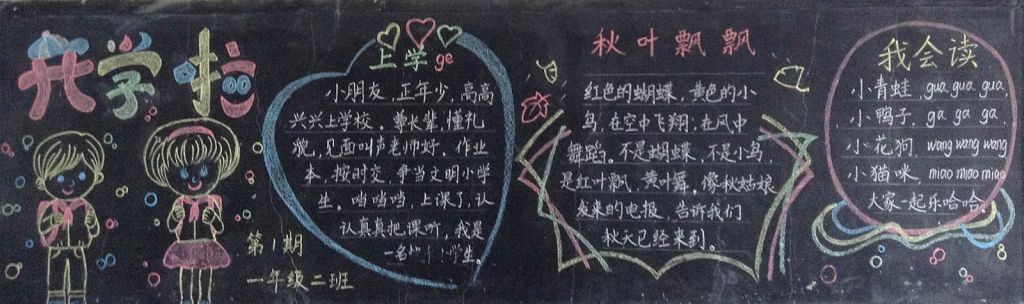 开学啦
第1期
一年级二班
上学 ge
小朋友,正年少,高高
兴兴上学校。尊长辈,懂礼
貌,见面叫声老师好。作业
本,按时交,争当文明小学
生。当当当,上课了,认
认真真把课听,我是
一名学生。
秋叶飘飘
红色的蝴蝶,黄色的小
鸟,在空中飞翔,在风中
舞蹈。不是蝴蝶,不是小鸟,
是红叶飘,黄叶舞。像秋姑娘
发来的电报,告诉我们
秋天已经来到。
我会读
小青蛙,gua gua gua,
小鸭子,ga ga ga
小花狗,wang wang wang
小猫咪,miao miao miao
大家一起乐哈哈。